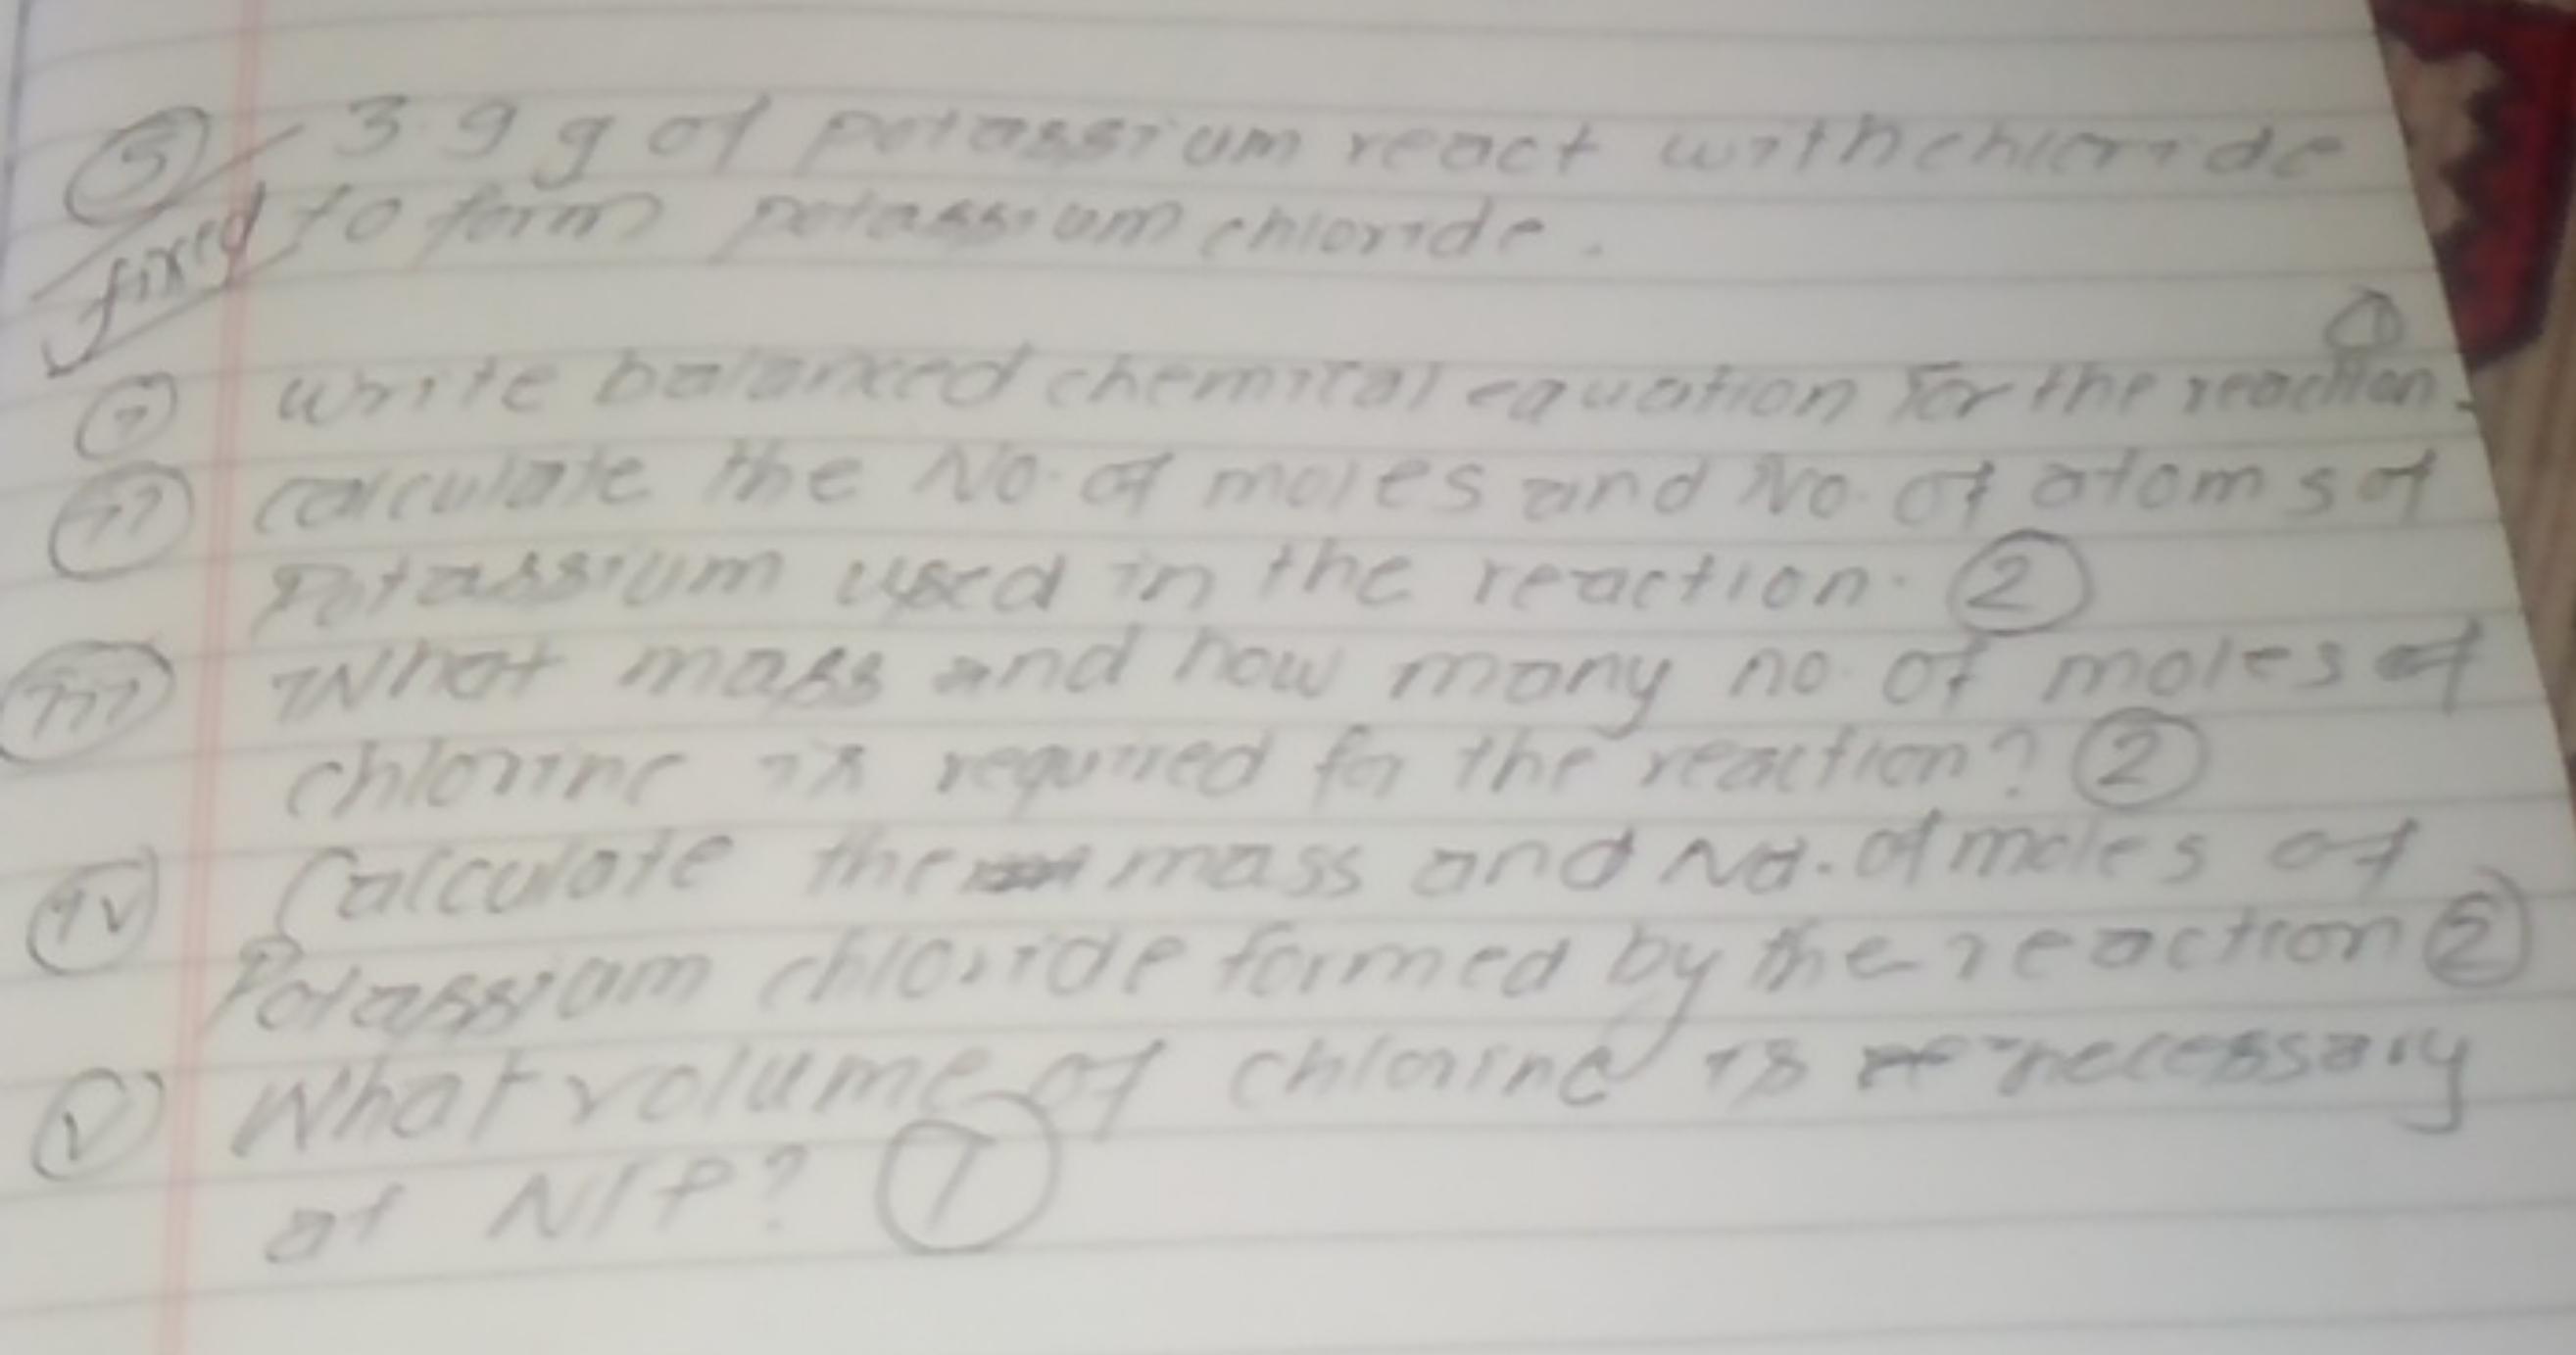 5 3.9 g of potassium react with chloride
fixed to form potassium chloride.
i write balanced chemical equation for the reaction. 1
ii calculate the No. of moles and No. of atoms of
Potassium used in the reaction. 2
iii What mass and how many no. of moles of
chlorine is required for the reaction? 2
iv Calculate the mass and No. of moles of
Potassium chloride formed by the reaction 2
v What volume of chlorine is necessary
at NTP? 1